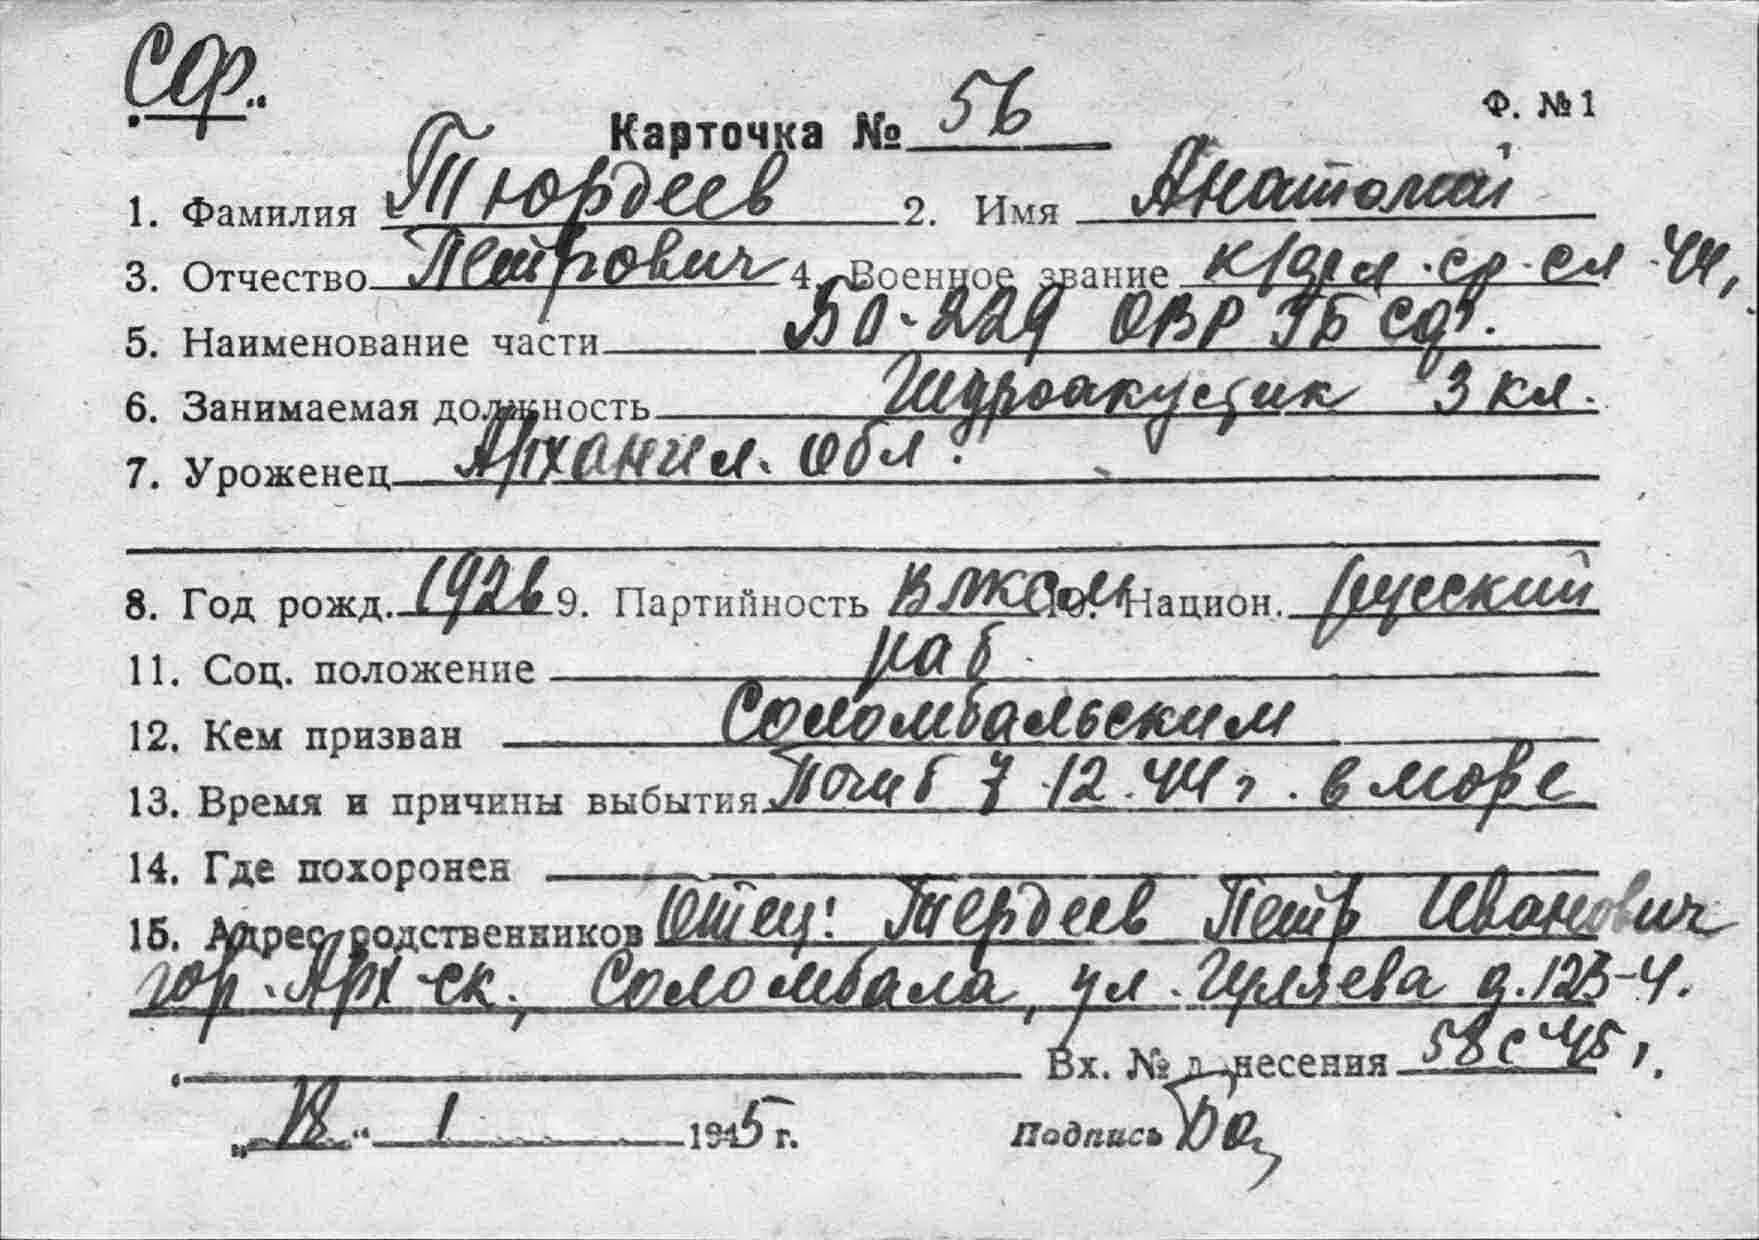 СФ.
Ф. № 1
Карточка № 56
1. Фамилия Тюрдеев 2. Имя Анатолий
3. Отчество Петрович 4. Военное звание к/фл. ср. сл 44,
5. Наименование части БО-229 ОВР ГБ СФ.
6. Занимаемая должность Гидроакустик 3 кл.
7. Уроженец Архангел. обл.
8. Год рожд. 1926 9. Партийность ВЛКСМ 10. Национ. русский
11. Соц. положение раб.
12. Кем призван Соломбальским
13. Время и причины выбытия Погиб 7.12.44 г. в море
14. Где похоронен
15. Адрес родственников Отец: Тюрдеев Петр Иванович
гор. Арх-ск, Соломбала, ул. Гуляева д. 123-4.
Вх. № донесения 58с 45,
„18“ 1 1945 г. Подпись